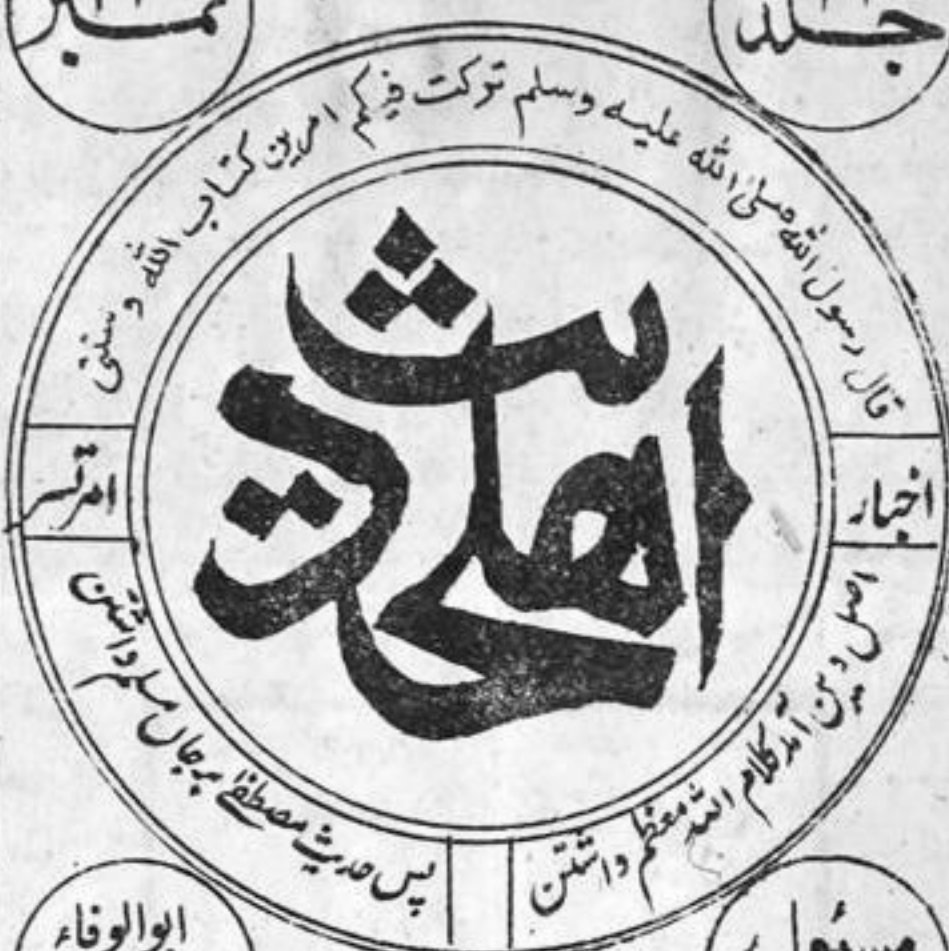 جلد
نمبر
قال رسول الله صلی الله علیه وسلم ترکت فیکم امرین کتاب الله و سنتی
اهلحدیث
اخبار
امرتسر
اصل دین آمد کلام الله معظم داشتن
پس حدیث مصطفےٰ بر جاں مسلم داشتن
ابوالوفاء